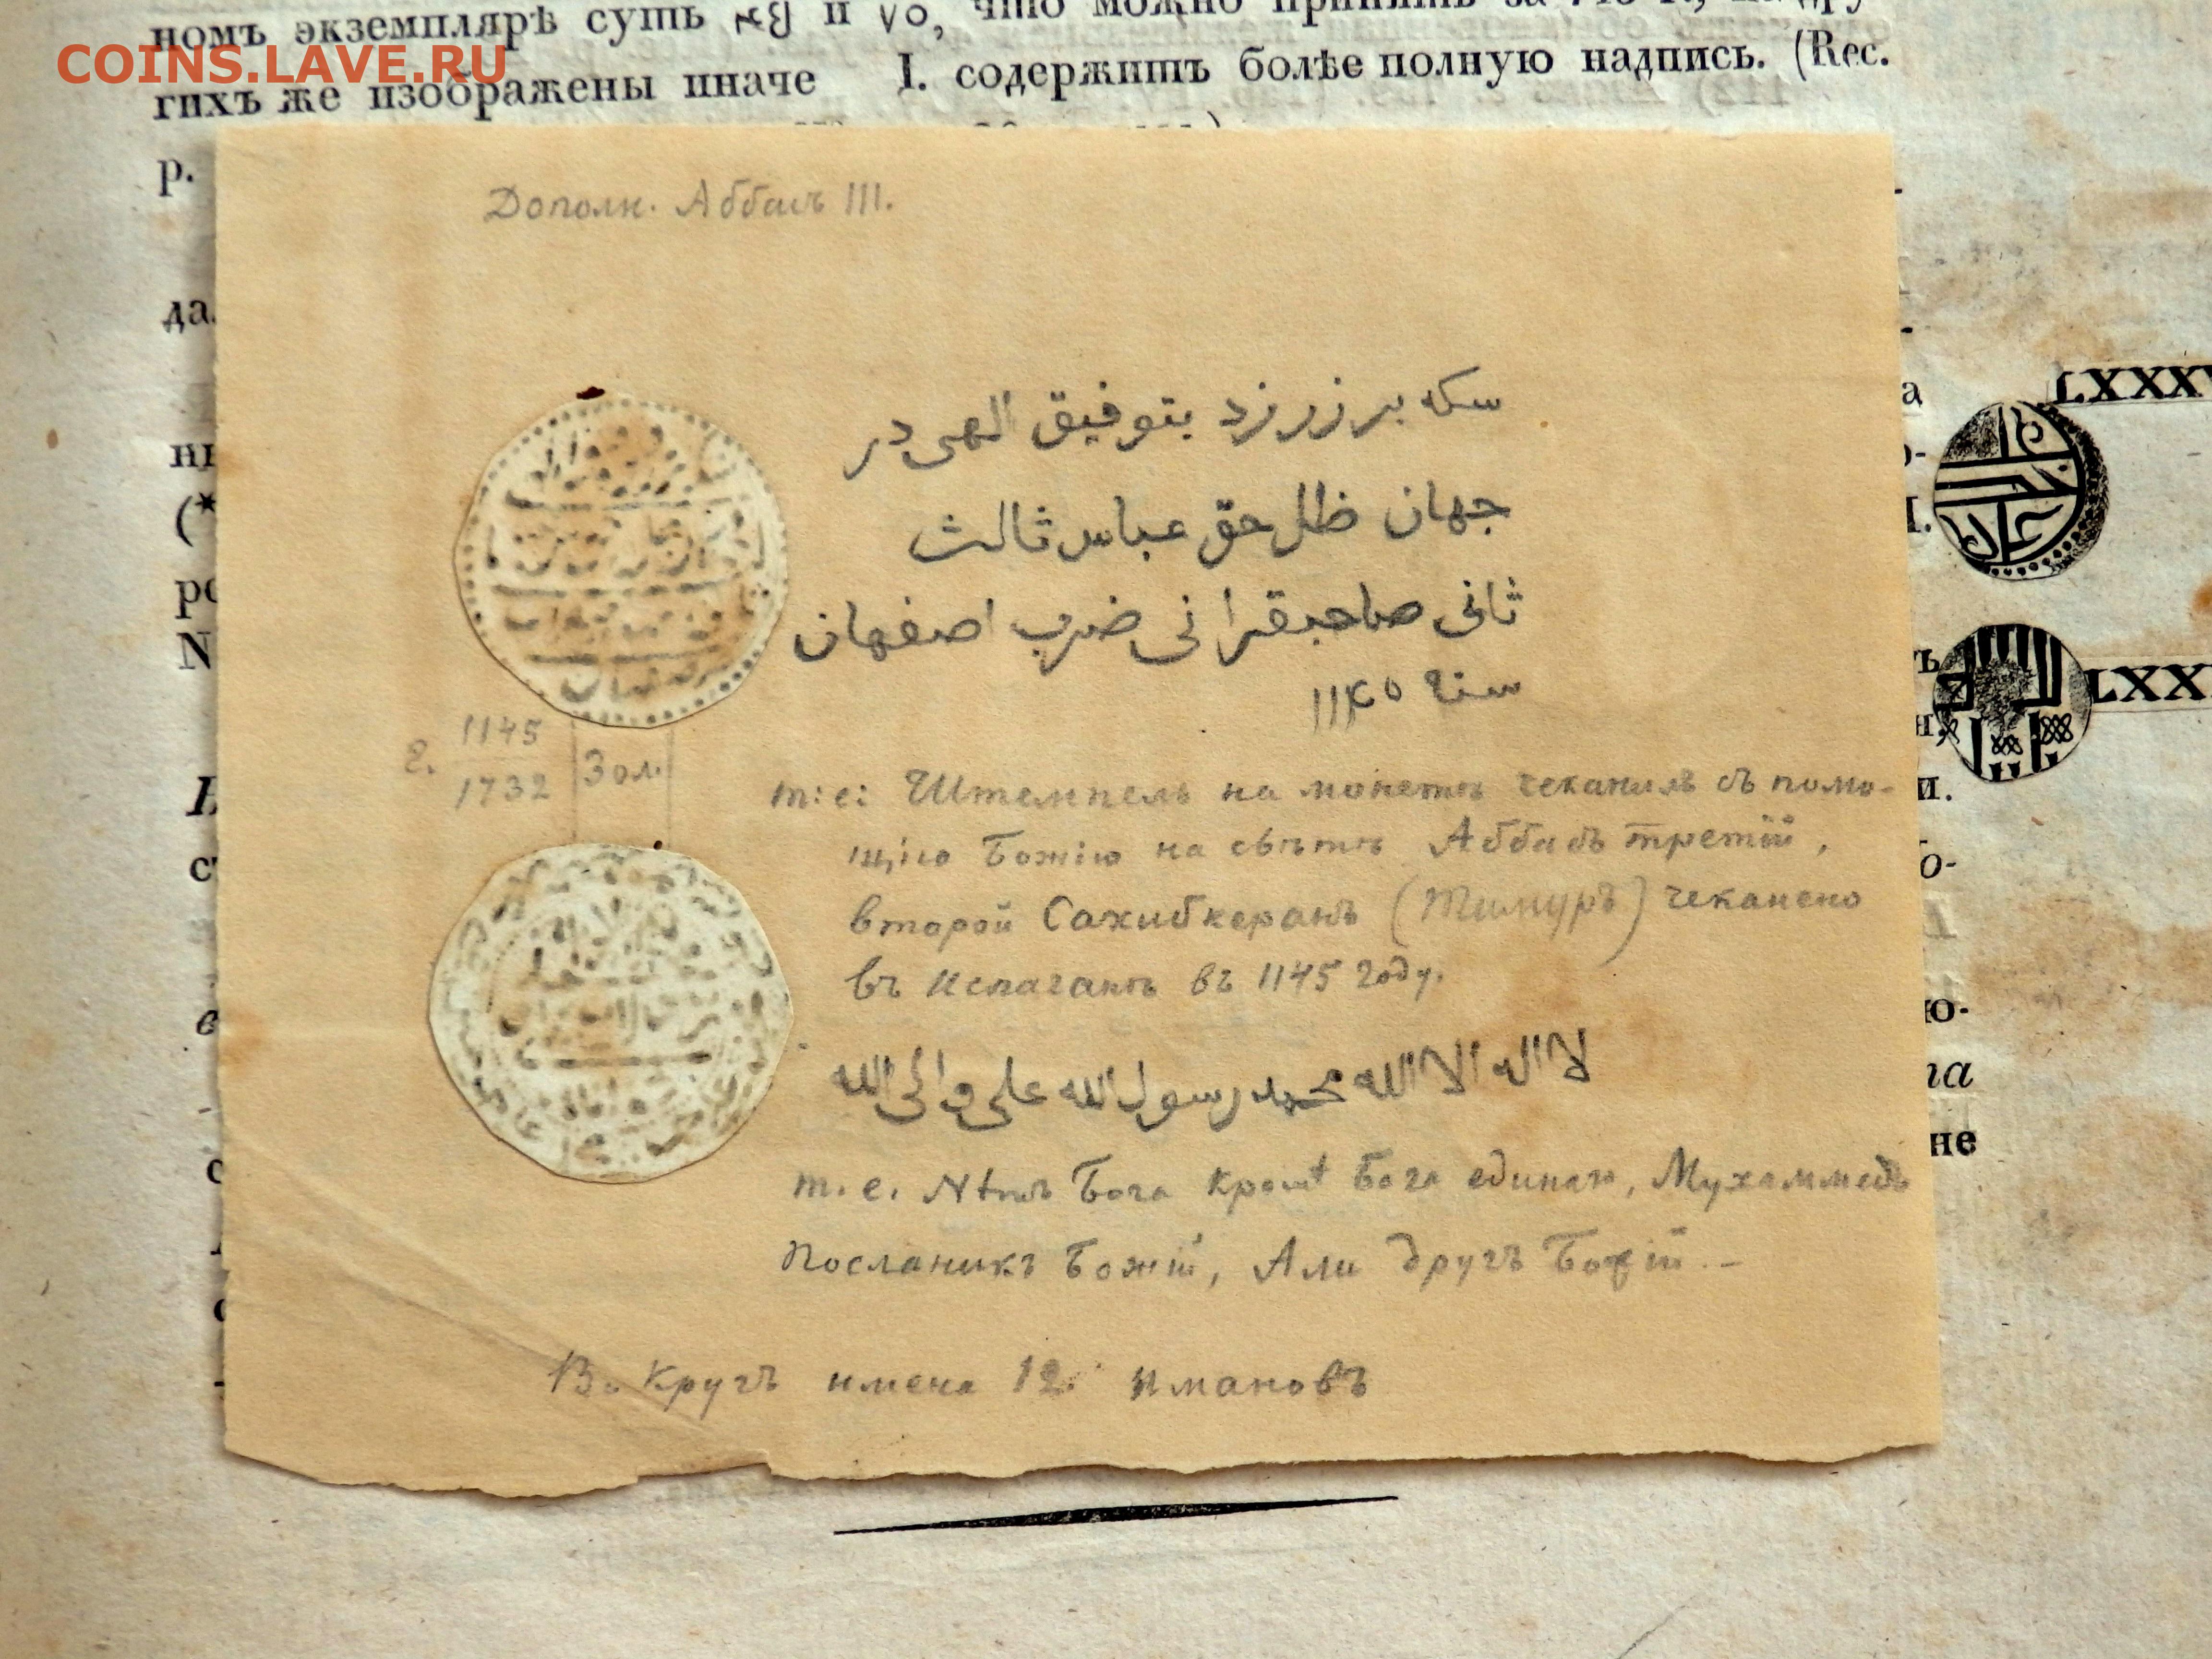 номъ экземплярѣ суть и что можно принять за
COINS.LAVE.RU
гихъ же изображены иначе I. содержитъ болѣе полную надпись. (Rec.
р.
Дополн. Аббасъ III.
да
سكه بر زر زد بتوفيق الهى در
جهان ظل حق عباس ثالث
ثانى صاحبقرانى ضرب اصفهان
سنة ۱۱۴۵
LXXX
LXX
г. 1145
1732
Зол.
т: е: Штемпель на монетѣ чеканилъ съ помо-
щію Божію на свѣтѣ Аббасъ третій,
второй Сахибкеранъ (Тимуръ) чеканено
въ Испаганѣ въ 1145 году.
لا اله الا الله محمد رسول الله على والى الله
т. е. Нѣтъ Бога кромѣ Бога единаго, Мухаммедъ
Посланикъ Божій, Али другъ Божій. –
Во Кругъ имена 12 имамовъ